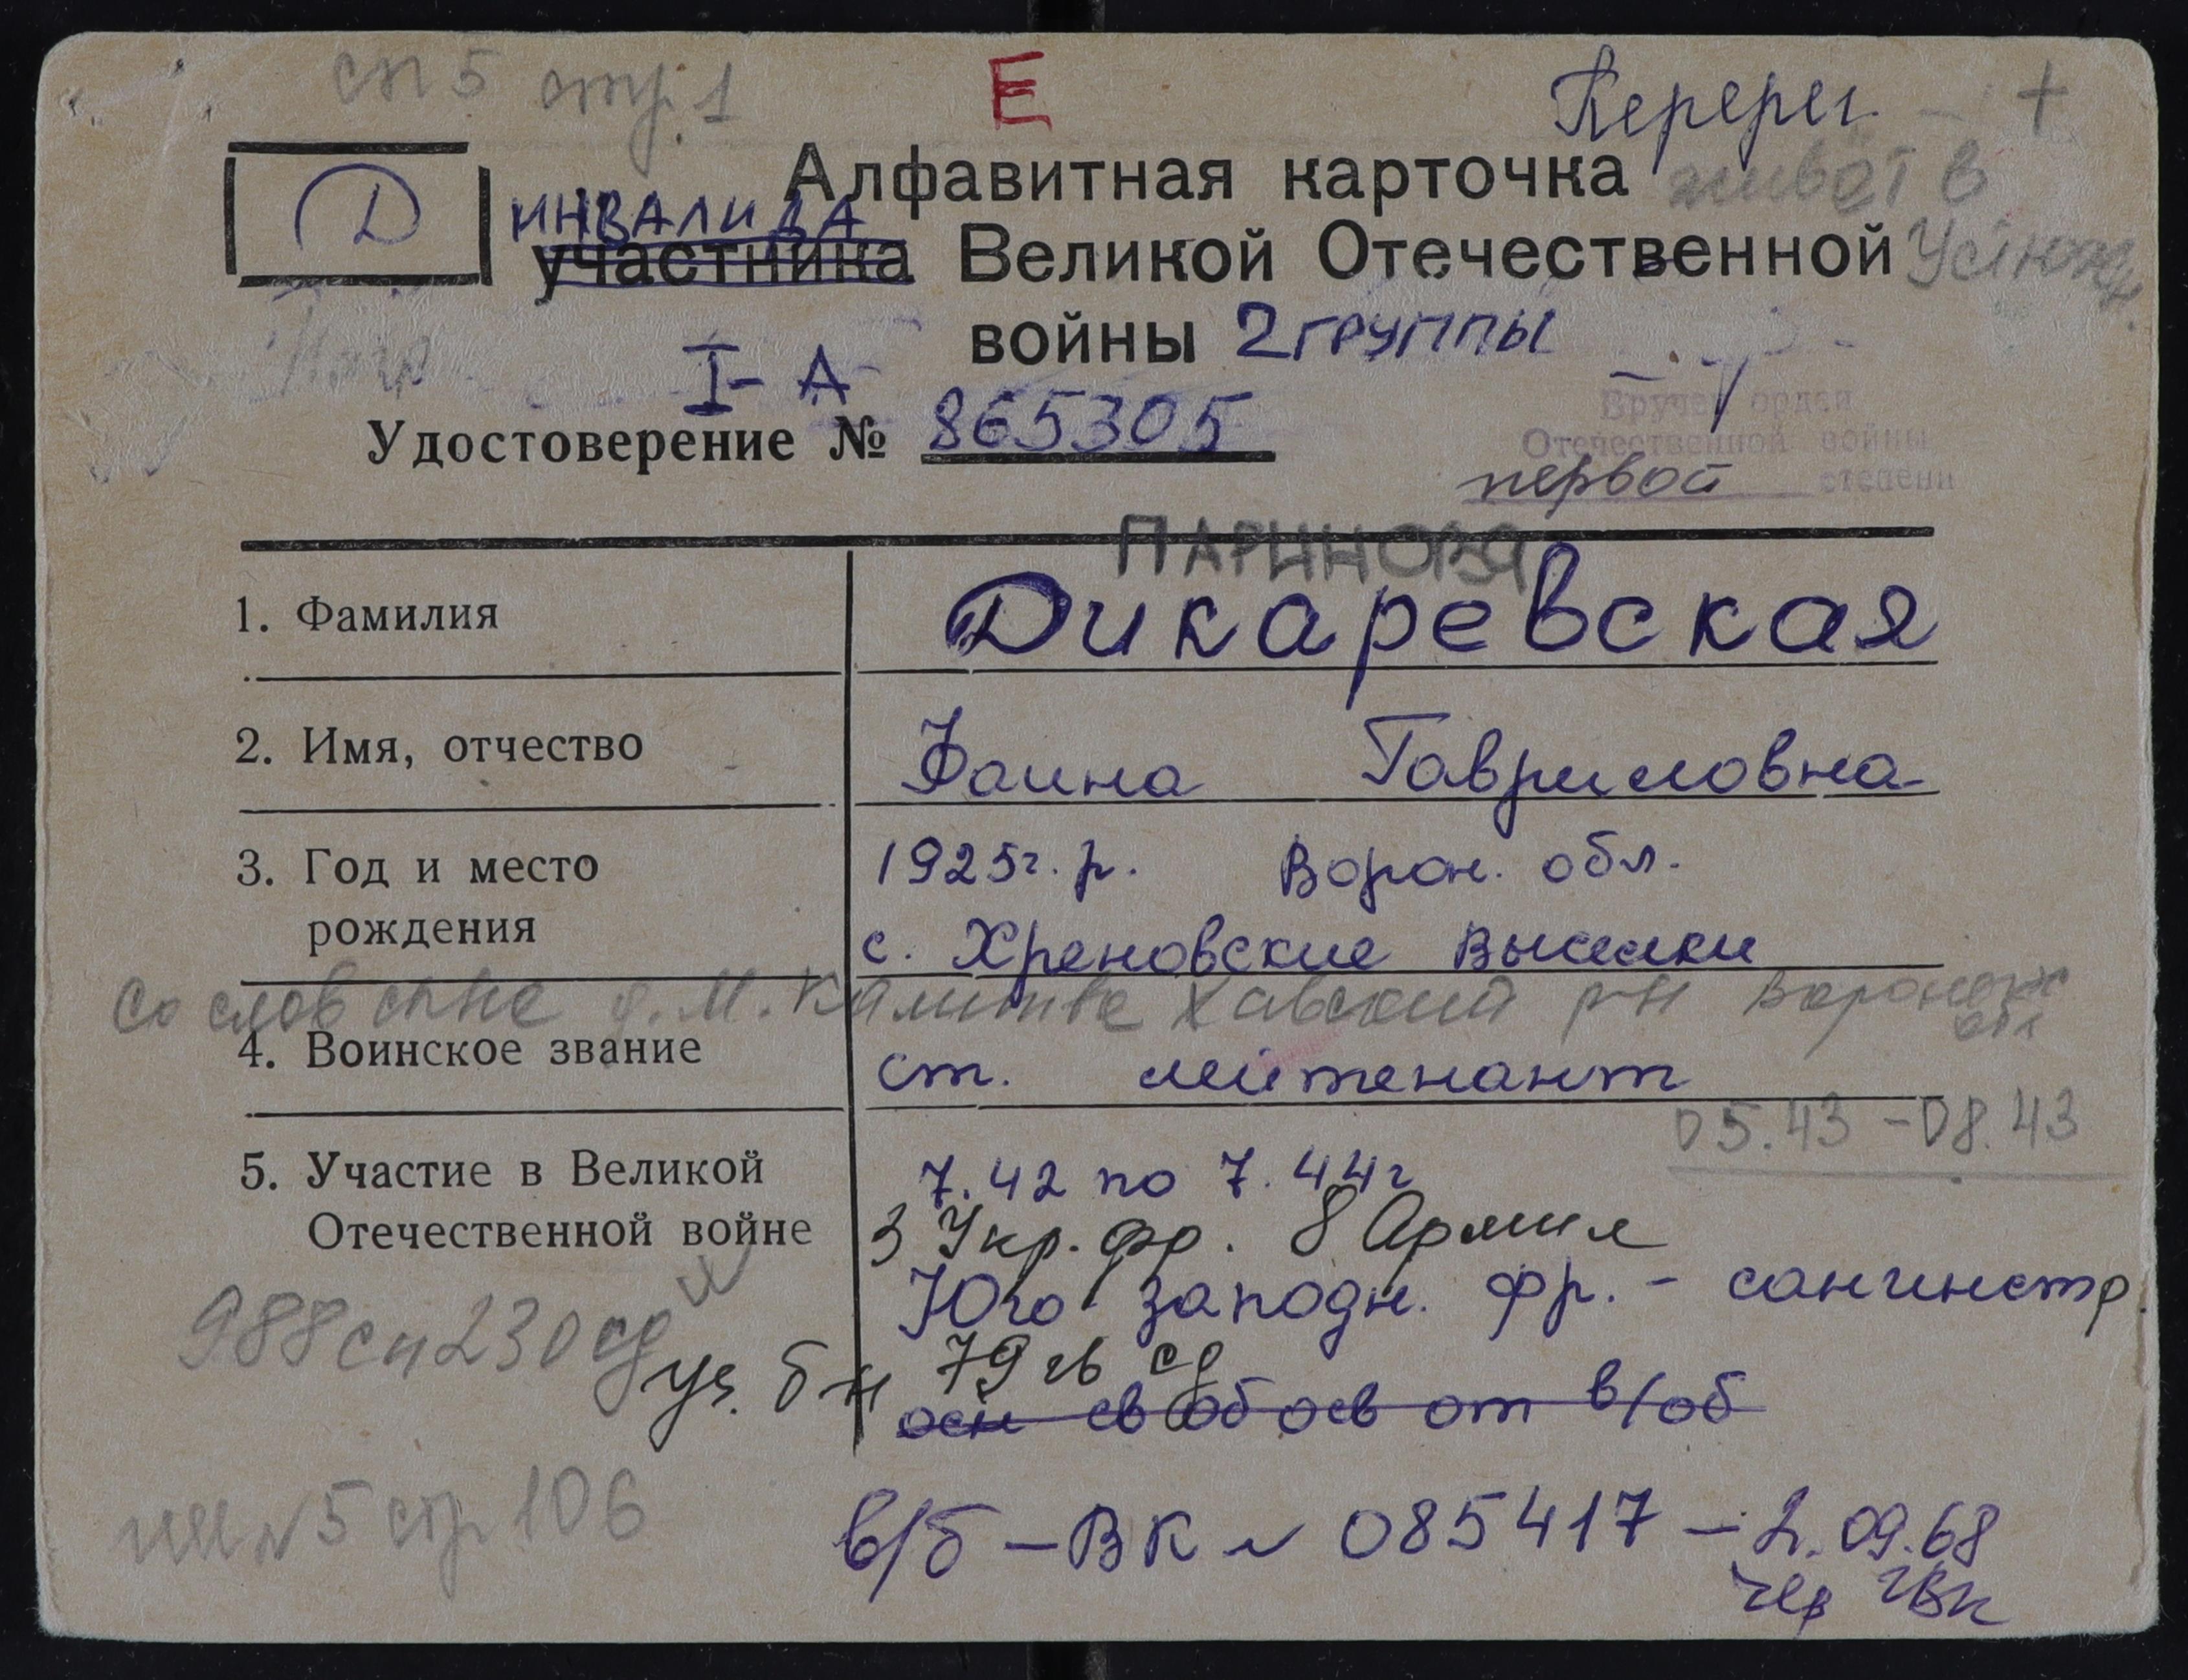 сп 5 стр. 1
Е
Перерег. +
Д
Алфавитная карточка
живёт в
инвалида
участника Великой Отечественной
войны 2 группы
I-А
Удостоверение № 865305
Вручен орден
Отечественной войны
первой степени
ПАРИНОВА
1. Фамилия Дикаревская
2. Имя, отчество Фаина Гавриловна
3. Год и место 1925г. р. Ворон. обл.
рождения с. Хреновские Выселки
со слов д. М. Хавский р-н Воронеж обл
4. Воинское звание ст. лейтенант
05.43 - 08.43
5. Участие в Великой 7.42 по 7.44г
Отечественной войне 3 Укр. фр. 8 Армия
Юго-западн. фр. - санинстр.
988 сп 230 сд
уч. б д 79 гв сд
осн свид осв от в/об
стр 106
в/б - ВК № 085417 - 2.09.68
ГВК